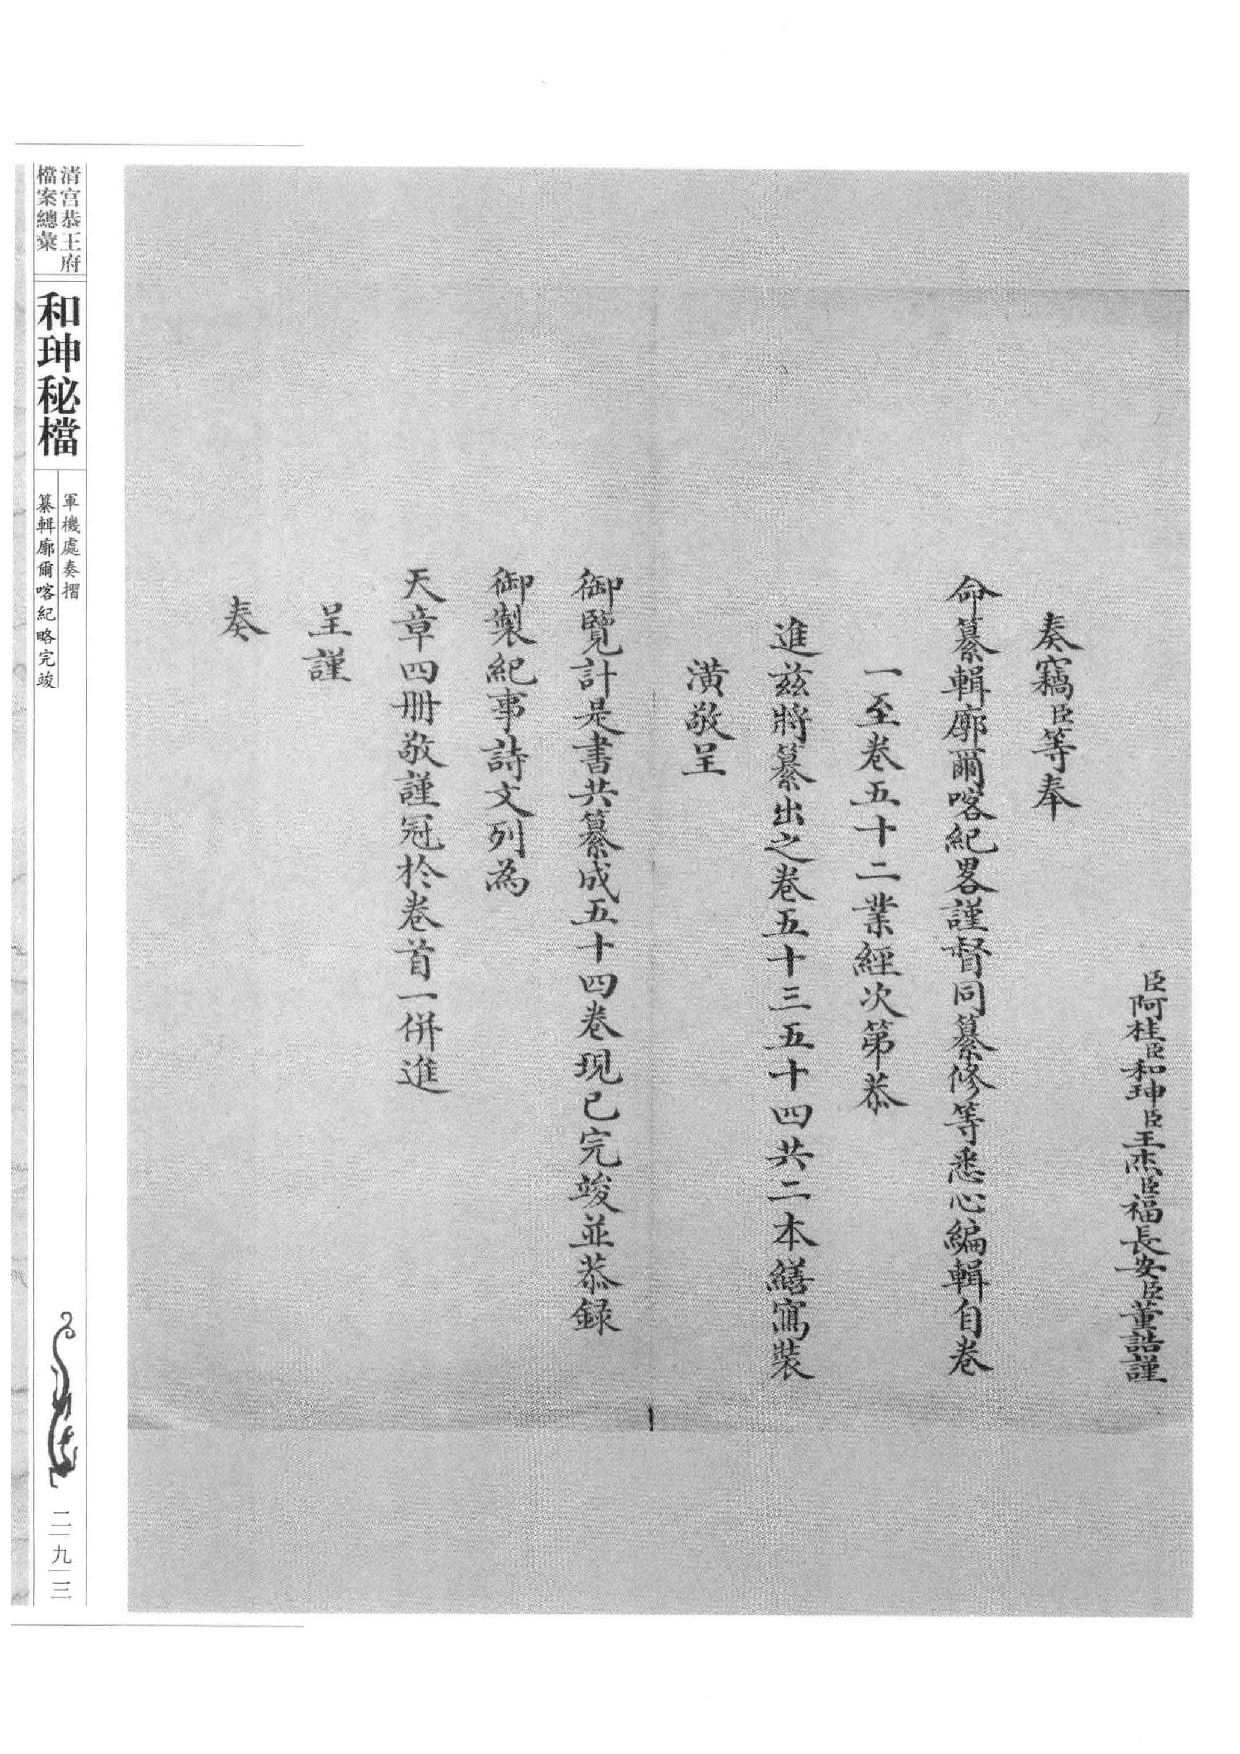 臣阿桂臣和珅臣王杰臣福長安臣董誥謹
奏竊臣等奉
命纂輯廓爾喀紀畧謹督同纂修等悉心編輯自卷
一至卷五十二業經次第恭
進兹將纂出之卷五十三五十四共二本繕寫裝
潢敬呈
御覽計是書共纂成五十四卷現已完竣並恭録
御製紀事詩文列為
天章四册敬謹冠於卷首一併進
呈謹
奏
清宫恭王府
檔案總彙
和珅秘檔
軍機處奏摺
纂輯廓爾喀紀略完竣
二九三